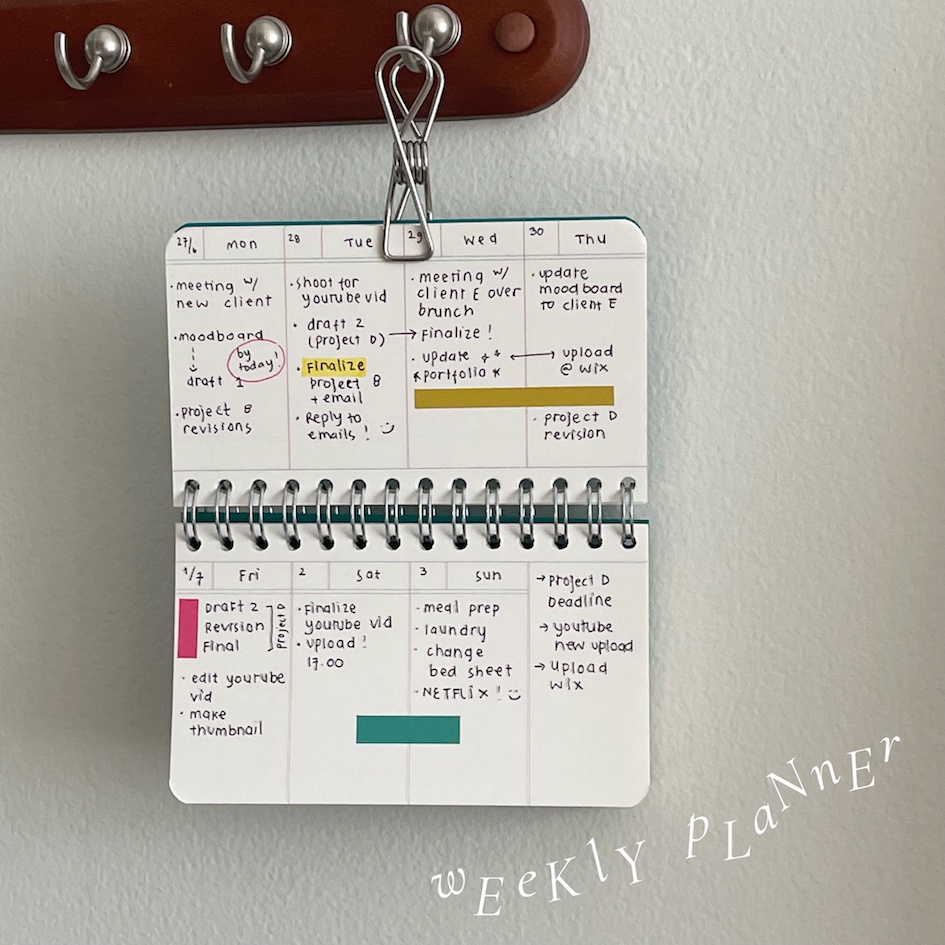 27/6 Mon
· meeting w/
new client
· moodboard
by
today!
draft 1
· project B
revisions
28 Tue
· shoot for
youtube vid
· draft 2
(project D) →
· Finalize
project B
+ email
· Reply to
emails !
29 Wed
· meeting w/
client E over
brunch
Finalize !
· update
portfolio
30 Thu
· update
moodboard
to client E
upload
@ wix
· project D
revision
1/7 Fri
Draft 2
Revision
Final
Project D
· edit youtube
vid
· make
thumbnail
2 Sat
· Finalize
youtube vid
· upload !
17.00
3 Sun
· meal prep
· laundry
· change
bed sheet
· NETFLIX !
→ Project D
Deadline
→ youtube
new upload
→ upload
wix
wEeKlY PLaNnEr